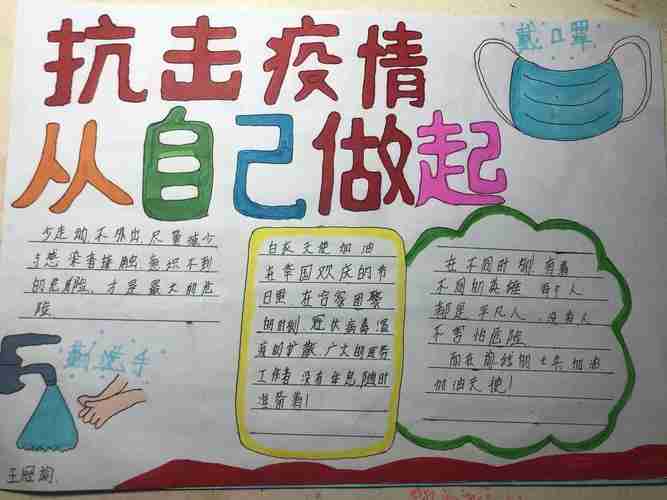 抗击疫情
从自己做起
戴口罩
少走动不外出尽量减少
与感染者接触意识不到
的危险，才是最大的危
险
白衣天使加油
在举国欢庆的节
日里在合家团聚
的时刻，冠状病毒
的扩散，广大的医务
工作者没有年息，随时
准备着！
在不同时刻，有着
不同的英雄
都是平凡人，没有人
不害怕危险
而在前线的士兵加油
加油天使！
勤洗手